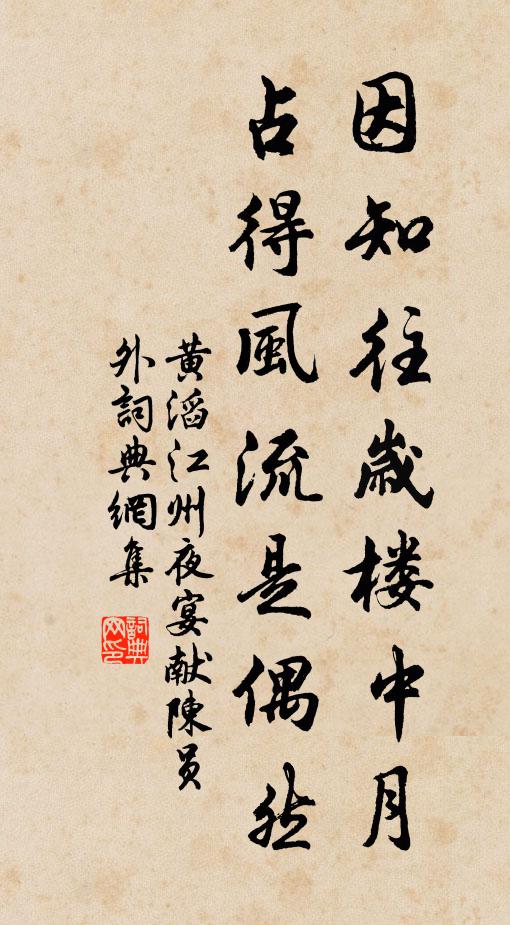 因知往歲楼中月
占得風流是偶然
黄滔江州夜宴献陳员
外詞典網集
詞典
网印